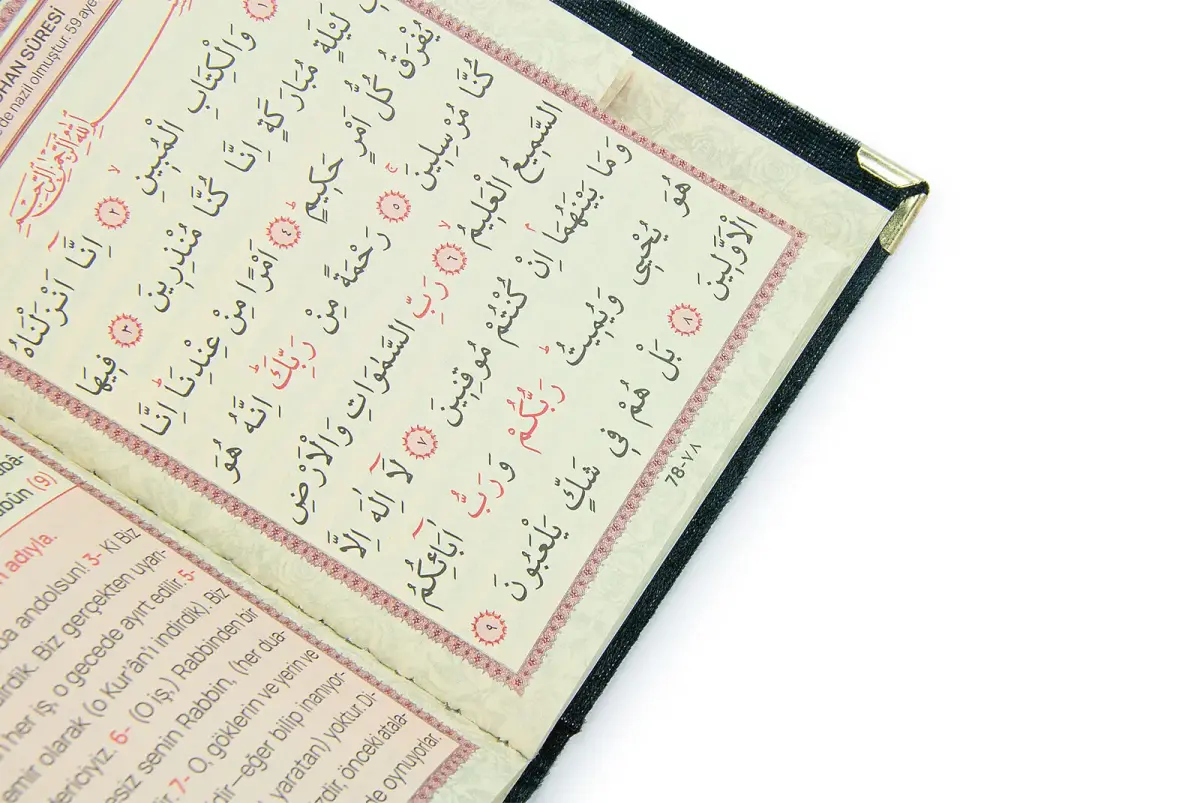 HAN SÛRESİ
de nazil olmuştur. 59 aye
﷽
١
وَالْكِتَابِ الْمُبِينِ ۙ ٢ اِنَّٓا اَنْزَلْنَاهُ
لَيْلَةٍ مُبَارَكَةٍ اِنَّا كُنَّا مُنْذِرِينَ ٣ فِيهَا
يُفْرَقُ كُلُّ اَمْرٍ حَكِيمٍ ۙ ٤ اَمْرًا مِنْ عِنْدِنَا ۜ اِنَّا
كُنَّا مُرْسِلِينَ ۚ ٥ رَحْمَةً مِنْ رَبِّكَ ۜ اِنَّهُ هُوَ
السَّمِيعُ الْعَلِيمُ ۙ ٦ رَبِّ السَّمٰوَاتِ وَالْاَرْضِ
وَمَا بَيْنَهُمَا ۢ اِنْ كُنْتُمْ مُوقِنِينَ ٧ لَٓا اِلٰهَ اِلَّا
هُوَ يُحْيِى وَيُمِيتُ ۜ رَبُّكُمْ وَرَبُّ اٰبَٓائِكُمُ
الْاَوَّلِينَ ٨ بَلْ هُمْ فِى شَكٍّ يَلْعَبُونَ ٩
78-٧٨
abûn (9)
adıyla.
andolsun! 3- Ki Biz
Biz gerçekten uyarı-
her iş, o gecede ayırt edilir. 5-
emir olarak (o Kur'ân'ı indirdik). Biz
6- (O iş,) Rabbinden bir
senin Rabbin, (her dua-
7- O, göklerin ve yerin ve
—eğer bilip inanıyor-
yaratan) yoktur. Di-
önceki atala-
oynuyorlar.